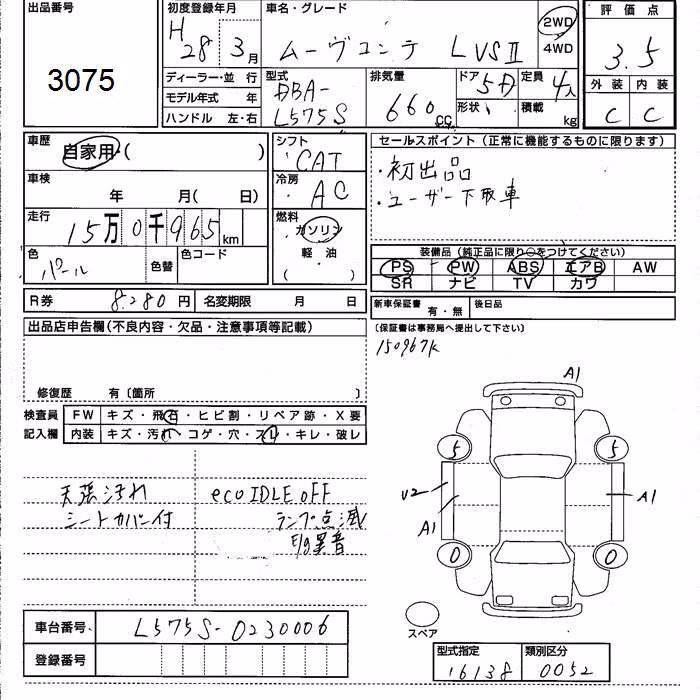 出品番号
3075
初度登録年月
H 28 3月
車名・グレード
ムーヴコンテ L VSⅡ
2WD
4WD
評価点
3.5
外装 内装
C C
ディーラー・並行
モデル年式 年
ハンドル 左・右
型式
DBA-
L575S
排気量
660 cc
ドア 5D
形状
定員 4人
積載 kg
車歴
自家用・( )
シフト
CAT
車検
年 月(日)
冷房
AC
走行
15万0千965km
燃料
ガソリン
軽・油
( )
色
パール
色替
色コード
セールスポイント(正常に機能するものに限ります)
・初出品
・ユーザー下取車
装備品(純正品に限り○をつけてください)
PS PW ABS エアB AW
SR ナビ TV カワ
R券 8280円 名変期限 月 日
新車保証書 有・無 後日品
(保証書は事務局へ提出して下さい)
150967K
出品店申告欄(不良内容・欠品・注意事項等記載)
修復歴 有〔箇所 〕
検査員
記入欄
FW キズ・飛石・ヒビ割・リペア跡・X要
内装 キズ・汚れ・コゲ・穴・スレ・キレ・破レ
天張汚れ
シートカバー付
eco IDLE OFF
ランプ点滅
E/g異音
A1
5 5
U2
A1
A1
0 0
スペア
車台番号 L575S-0230006
登録番号
型式指定 類別区分
16138 0052